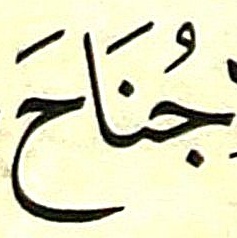 جُنَاحَ